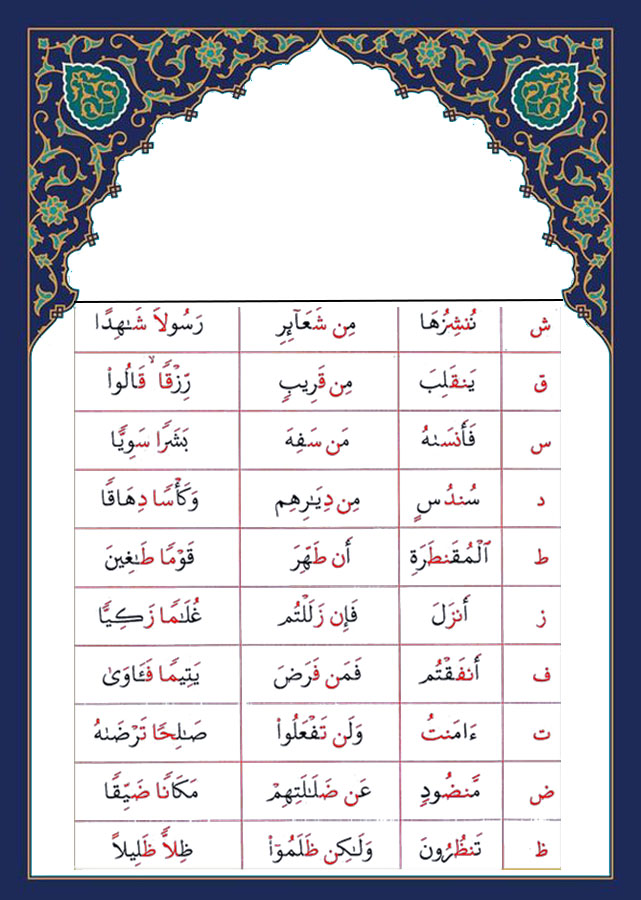 ش نُنشِزُهَا مِن شَعَآئِرِ رَسُولاً شَـٰهِدًا
ق يَنقَلِبَ مِن قَرِيبٍ رِّزْقًا ۙ قَالُوا۟
س فَأَنسَىٰهُ مَن سَفِهَ بَشَرًا سَوِيًّا
د سُندُسٍ مِن دِيَـٰرِهِم وَكَأْسًا دِهَاقًا
ط ٱلْمُقَنطَرَةِ أَن طَهِّرَ قَوْمًا طَـٰغِينَ
ز أَنزَلَ فَإِن زَلَلْتُم غُلَـٰمًا زَكِيًّا
ف أَنفَقْتُم فَمَن فَرَضَ يَتِيمًا فَـَٔاوَىٰ
ت ءَامَنتُ وَلَن تَفْعَلُوا۟ صَـٰلِحًا تَرْضَىٰهُ
ض مَّنضُودٍ عَن ضَلَـٰلَتِهِمْ مَكَانًا ضَيِّقًا
ظ تَنظُرُونَ وَلَـٰكِن ظَلَمُوٓا۟ ظِلاًّ ظَلِيلاً